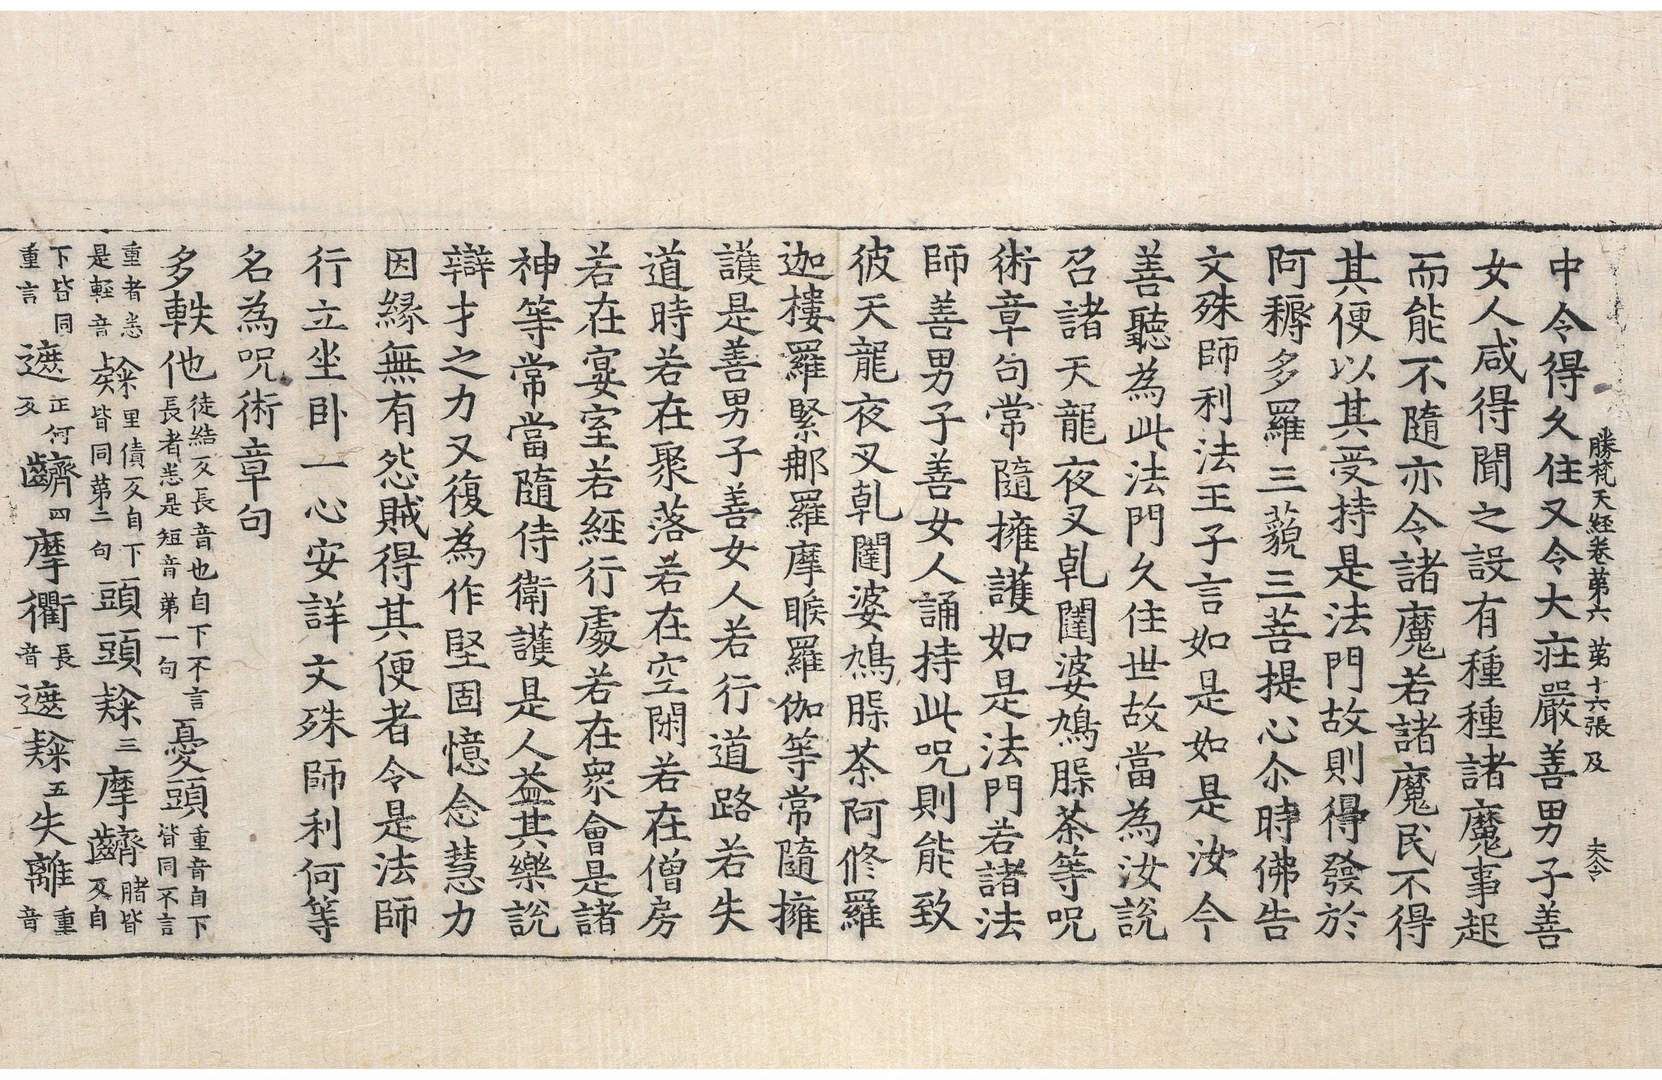 勝梵天経卷第六 第十六張 及
中令得久住又令大莊嚴善男子善
女人咸得聞之設有種種諸魔事起
而能不隨亦令諸魔若諸魔民不得
其便以其受持是法門故則得發於
阿耨多羅三藐三菩提心尒時佛告
文殊師利法王子言如是如是汝今
善聽為此法門久住世故當為汝說
召諸天龍夜叉乹闥婆鳩槃荼等呪
術章句常隨擁護如是法門若諸法
師善男子善女人誦持此呪則能致
彼天龍夜叉乹闥婆鳩槃荼阿修羅
迦樓羅緊那羅摩睺羅伽等常隨擁
護是善男子善女人若行道路若失
道時若在聚落若在空閑若在僧房
若在宴室若經行處若在衆會是諸
神等常當隨侍衛護是人益其樂說
辯才之力又復為作堅固憶念慧力
因緣無有怨賊得其便者令是法師
行立坐卧一心安詳文殊師利何等
名為呪術章句
多軼他徒結反長音也自下不言長者悉是短音第一句憂頭重音自下皆同不言
重者悉是輕音里債反自下皆同第二句頭頭三摩臍皆反自
下皆同重言遮正何反臍四摩衢長音遮五失離重音